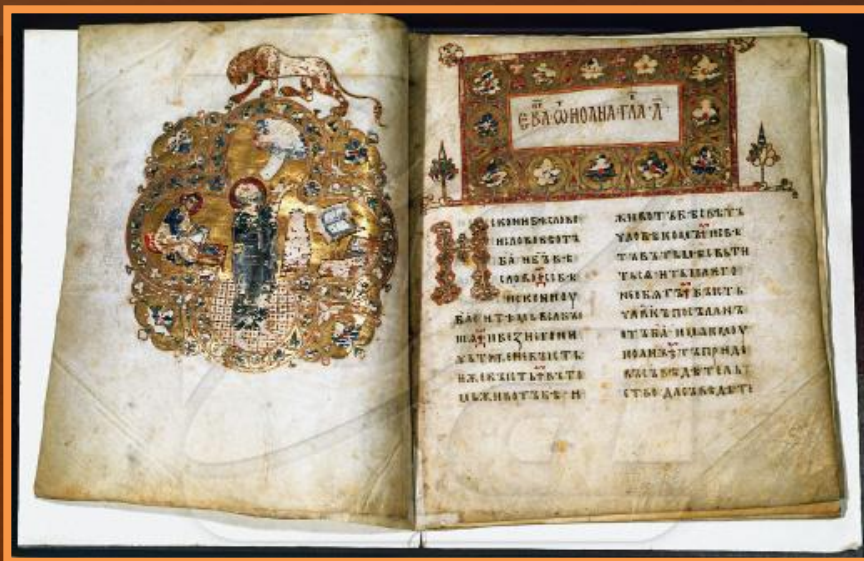 ЕВА·ѠИОАНА·ГЛА·А҃·
ИСКОНИБѢСЛОВО
ИСЛОВОБѢОТЪ
БА҃·ИБ҃ЪБѢ
СЛОВО·СЕБѢ
ИСКОНИОУ
БА҃·ИТѢМЬВЬСѦБЫ
ША·ИБЕЗНЕГОНИ
ЧЬТОЖЕНЕБЫСТЬ·
ЕЖЕБЫСТЬ·ВЪТО
МЬЖИВОТЪБѢ·И
ЖИВОТЪБѢСВѢТЪ
ЧЛОВѢКОМЪ·ИСВѢ
ТЪВЪТЬМѢСВЬТИ
ТЬСѦ·ИТЬМАЕГО
НЕОБѦТЪ·БЫСТЬ
ЧЛ҃ВКЪПОСЪЛАНЪ
ОТЪБА҃·ИМѦЕМОУ
ИОАНЪ·ТЪПРИДЕ
ВЪСЪВѢДѢТЕЛЬ
СТВО·ДАСЪВѢДѢТЕ